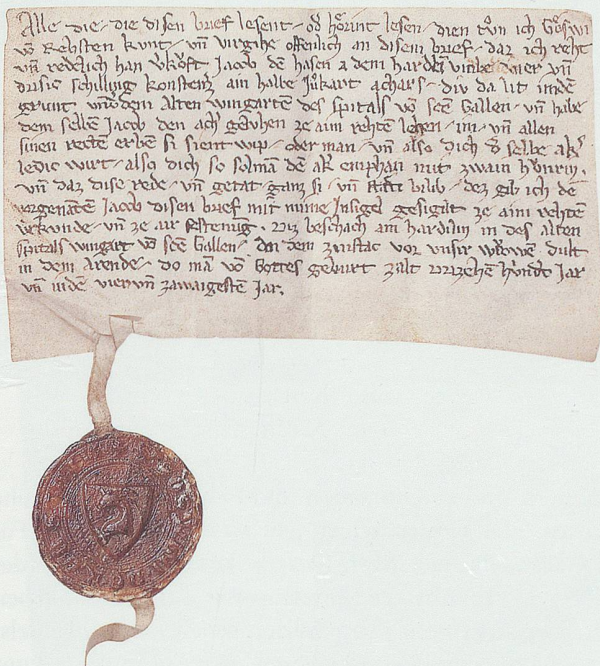 Alle die · die disen brief lesent · od̄ hȯrint lesen · dien tůn ich Gȯswi
vō Rebsten kunt · vn̄ virgihe offenlich an disem brief · daz ich reht
vn̄ redelich han v̓kȯft Jacob dē hasen a dem hardeī vmbe vier vn̄
drisic schilling konstenz̓ ain halbe Jůkart achers · div da lit indē
grunt vndem Alten wingarten des spitals vō scē Gallen · vn̄ habe
dem selbē Jacob den ach̓ gelvhen ze aim rehtē lehen · im · vn̄ allen
sinen rectē erbē si sient wip · oder man · vn̄ also dich d̓ selbe ak̓
ledic wirt · also dich so solman dē ak̓ emphan mit zwain hvnrin ·
vn̄ daz dise rede · vn̄ getat · ganz si · vn̄ bilib · dez gib ich dē
vorgenātē Jacob disen brief mit mime Insigel gesigilt ze aim rehten
vrkvnde · vn̄ ze air festenūg · Diz beschach am hardin in des alten
spitals wingart vō scē Gallen · An dem zinstac vor vnsir vrowen dult
in dem Arende · do mā vō Gottes gebvrt zalt drizehē hvnd̓t Jar
vn̄ indē viervn̄ zawaigestē Jar.